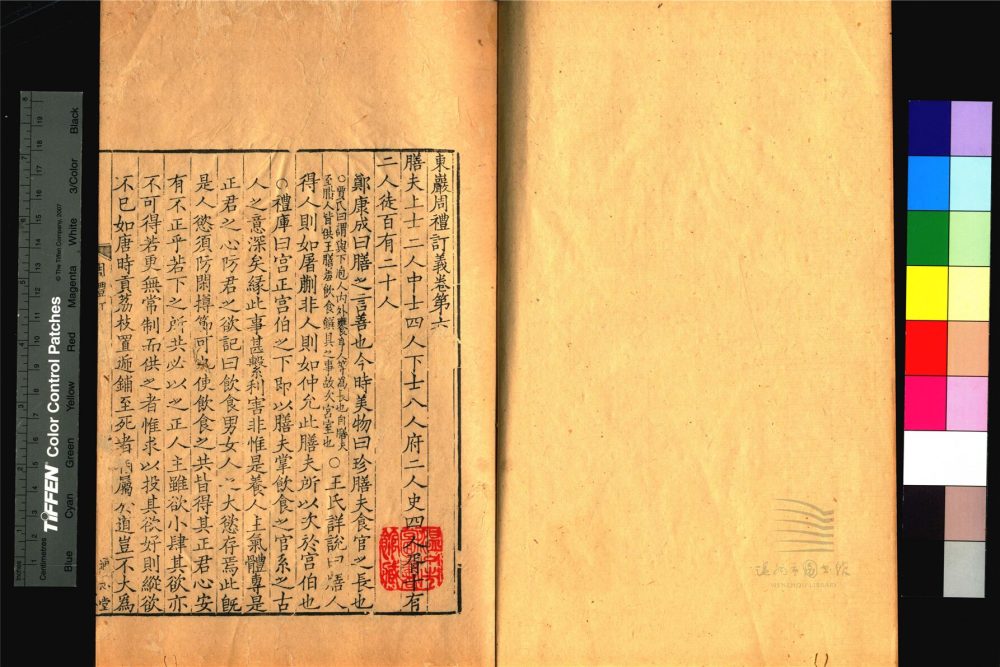 東巖周禮訂義卷第六
膳夫上士二人中士四人下士八人府二人史四人胥十有
二人徒百有二十人
鄭康成曰膳之言善也今時美物曰珍膳膳夫食官之長也
○賈氏曰謂與下庖人內外饔亨人等為長也自膳夫
至腊人皆供王膳羞飲食饌具之事故次宮室也
○王氏詳說曰膳人
得人則如屠蒯非人則如仲允此膳夫所以次於宮伯也
○禮庫曰宮正宮伯之下即以膳夫掌飲食之官系之古
人之意深矣緣此事甚繫利害非惟是養人主氣體專是
正君之心防君之欲記曰飲食男女人之大慾存焉此既
是人慾須防閑撙節可也使飲食之共皆得其正君心安
有不正乎若下之所共必以之正人主雖欲小肆其欲亦
不可得若更無常制而供之者惟求以投其欲好則縱欲
不已如唐時貢荔枝置遞鋪至死者相屬於道豈不大為
周禮丁
通志堂
溫州市圖書館
WENZHOU LIBRARY
TIFFEN Color Control Patches
© The Tiffen Company, 2007
Inches
Centimetres
Blue Cyan Green Yellow Red Magenta White 3/Color Black